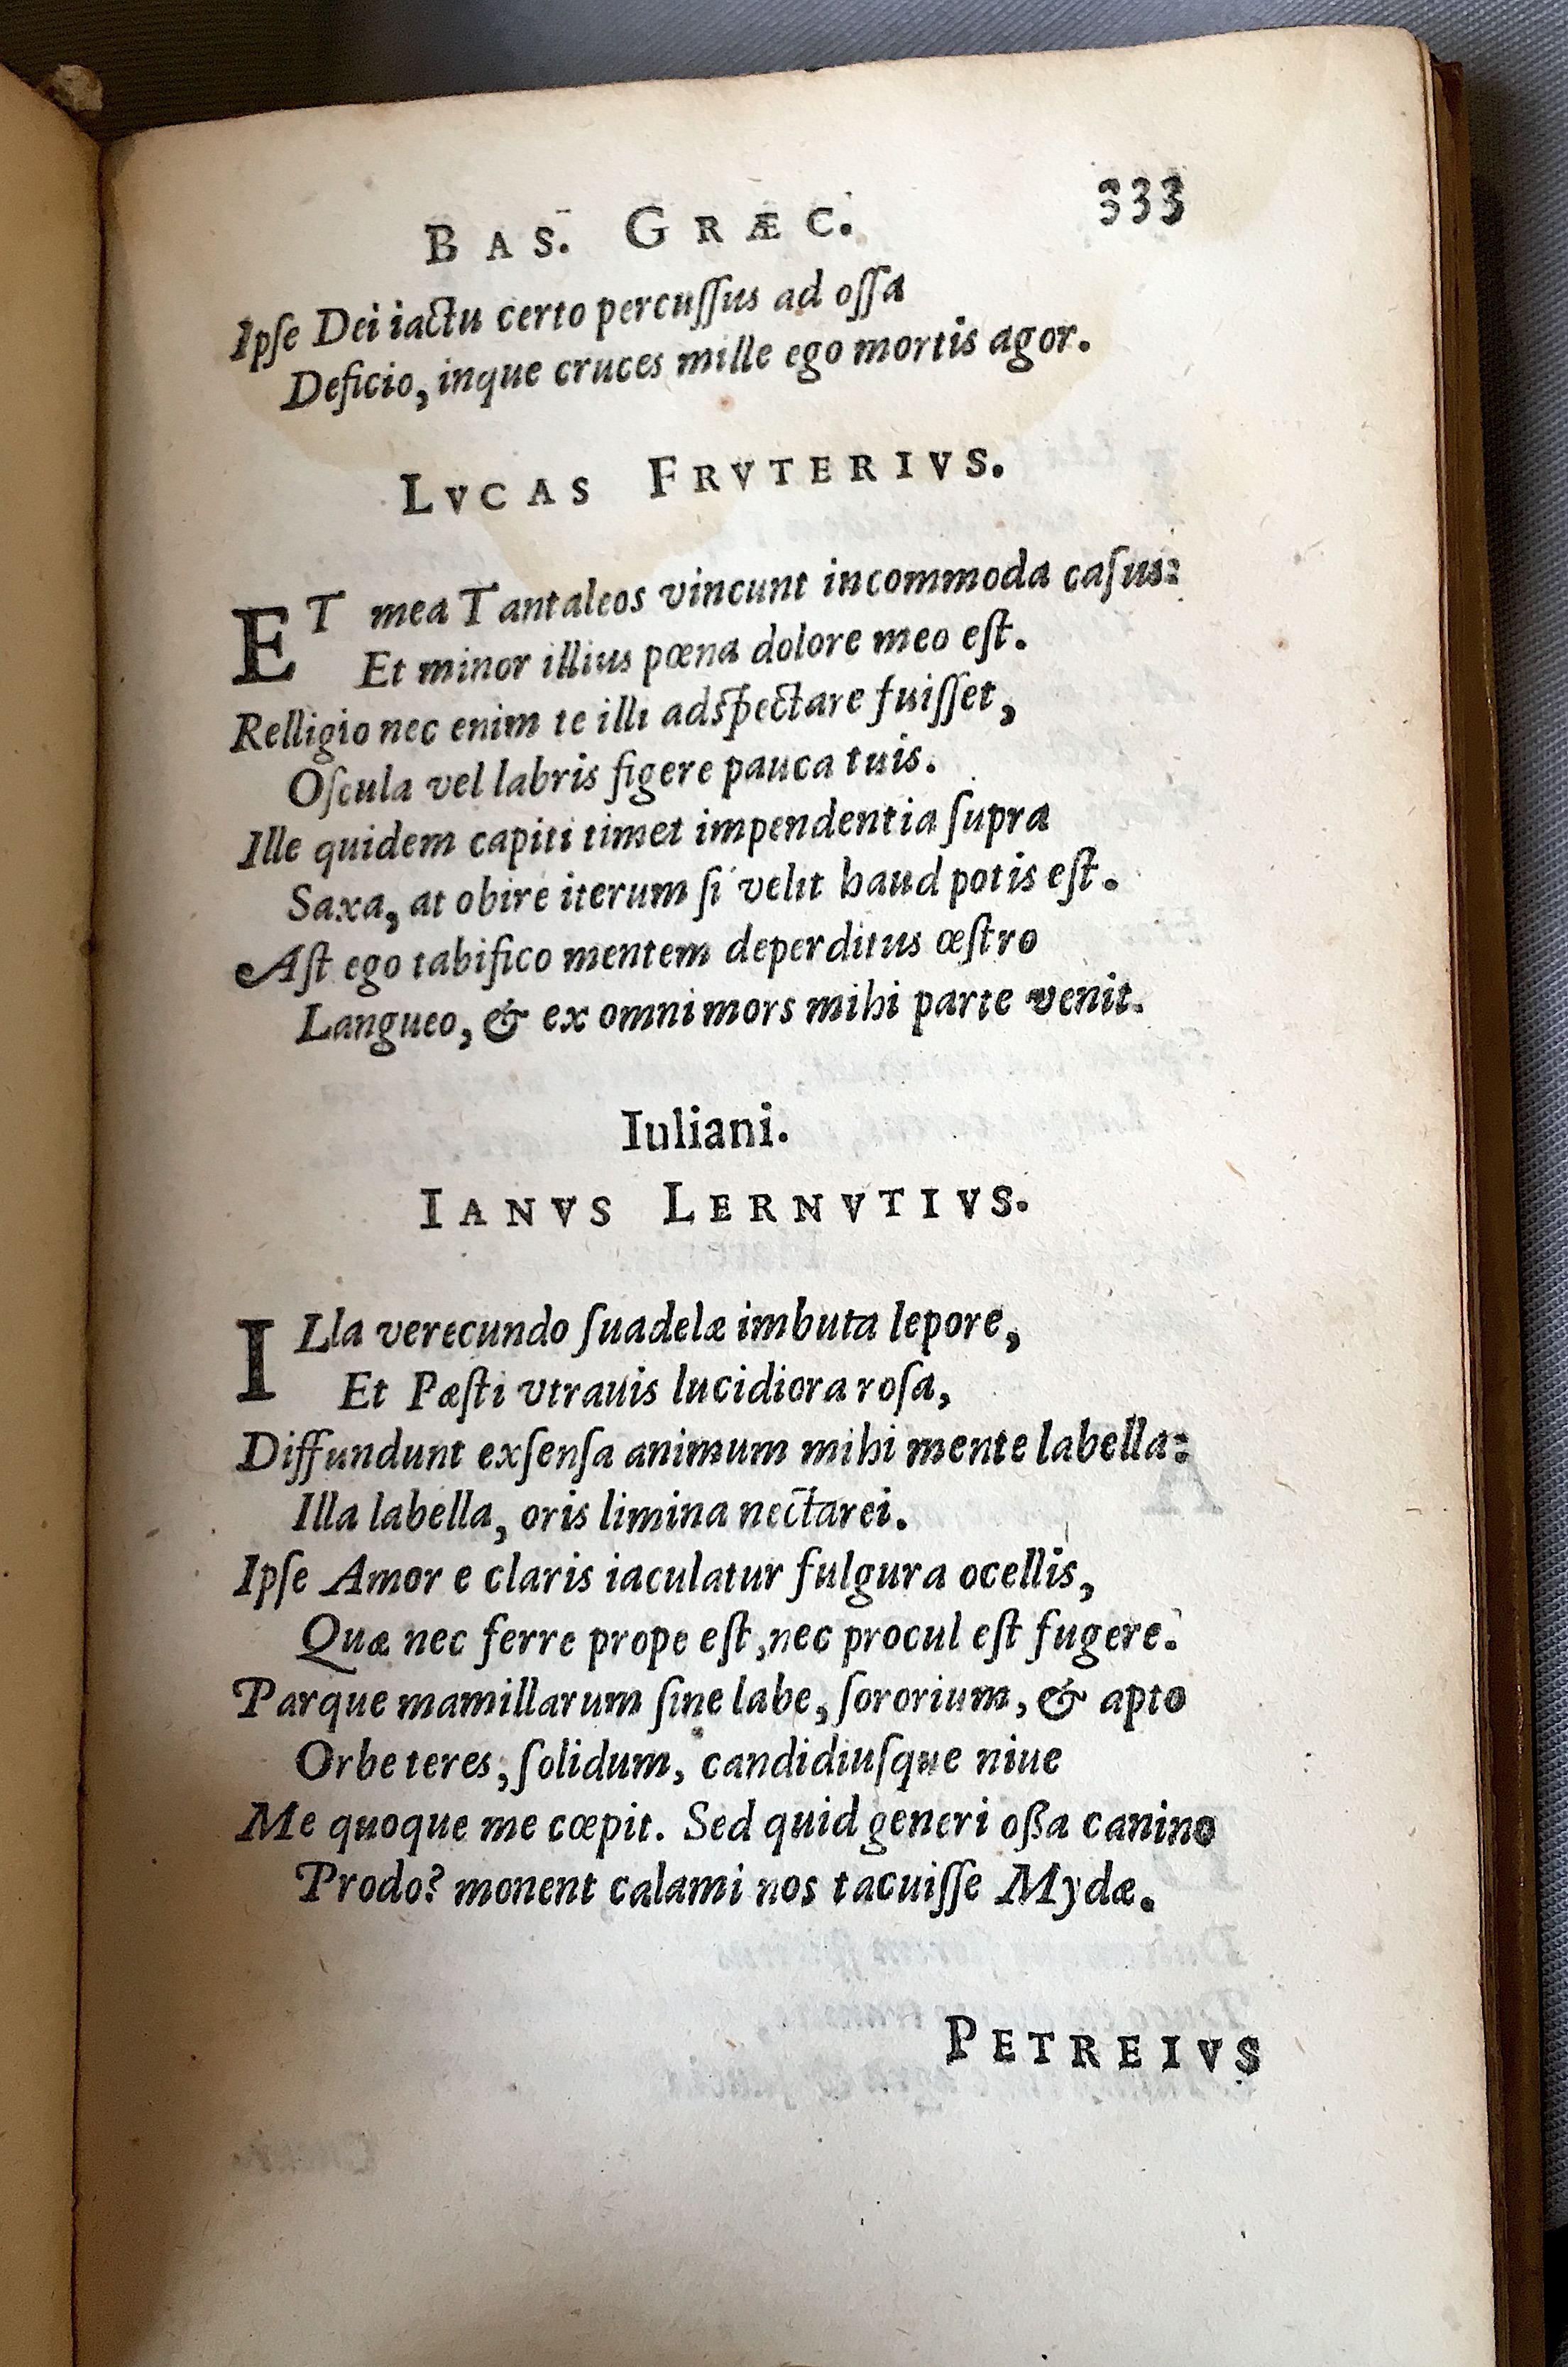 BAS. GRÆC. 333
Ipſe Dei iactu certo percuſſus ad oſſa
Deficio, inque cruces mille ego mortis agor.
LVCAS FRVTERIVS.
ET mea Tantaleos vincunt incommoda caſus:
Et minor illius pœna dolore meo eſt.
Relligio nec enim te illi adſpectare fuiſſet,
Oſcula vel labris figere pauca tuis.
Ille quidem capiti timet impendentia ſupra
Saxa, at obire iterum ſi velit haud potis eſt.
Aſt ego tabifico mentem deperditus œſtro
Langueo, & ex omni mors mihi parte venit.
Iuliani.
IANVS LERNVTIVS.
ILla verecundo ſuadelæ imbuta lepore,
Et Pæſti vtrauis lucidiora roſa,
Diffundunt exſenſa animum mihi mente labella:
Illa labella, oris limina nectarei.
Ipſe Amor e claris iaculatur fulgura ocellis,
Quæ nec ferre prope eſt, nec procul eſt fugere.
Parque mamillarum ſine labe, ſororium, & apto
Orbe teres, ſolidum, candidiuſque niue
Me quoque me cœpit. Sed quid generi oßa canino
Prodo? monent calami nos tacuiſſe Mydæ.
PETREIVS